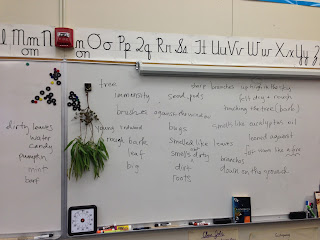 Ll Mm Nn Oo Pp Qq Rr Ss Tt Uu Vv Ww Xx Yy Z
on on
tree
immensity
brushes against the window
young inward
rough bark
leaf
big
seed pods
bugs
smelled like leaves
smells dirty
dirt
roots
share branches up high in the sky
felt dry + rough
touching the tree (bark)
smells like eucalyptus oil
leaned against
far more like a tree
branches
down on the ground
dirty leaves
water
candy
pumpkin
mint
barf